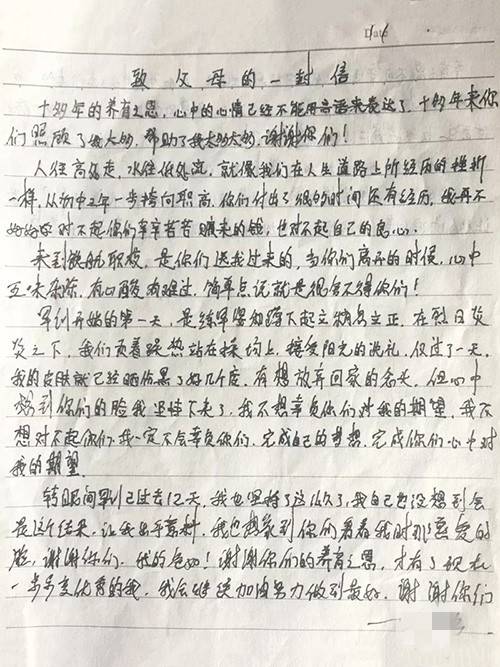 Date
致父母的一封信
十多年的养育之恩，心中的心情已经不能用言语来表达了，十多年来你
们照顾了我太多，帮助了我太多太多，谢谢你们！
人往高处走，水往低处流，就像我们在人生道路上所经历的挫折
一样，从初中三年一步跨向职高，你们付出了很多时间还有经历，我再不
好好学对不起你们辛辛苦苦赚来的钱，也对不起自己的良心。
来到航职校，是你们送我过来的，当你们离开的时候，心中
五味杂陈，有心酸有难过，简单点说就是很舍不得你们！
军训开始的第一天，是练军姿和蹲下起立稍息立正，在烈日炎
炎之下，我们顶着炎热站在操场上，接受阳光的洗礼，仅过了一天，
我的皮肤就已经晒伤黑了好几个度，有想放弃回家的念头，但心中
想到你们的脸我坚持下来了，我不想辜负你们对我的期望，我不
想对不起你们，我一定不会辜负你们，完成自己的梦想，完成你们心中对
我的期望。
转眼间军训已过去12天，我也坚持了这么久了，我自己也没想到会
是这个结果，让我出乎意料，我也想象到你们看着我时那喜爱的
脸，谢谢你们，我的爸妈！谢谢你们的养育之恩，才有了现在
一步步变优秀的我，我会继续加油努力做到最好，谢谢你们